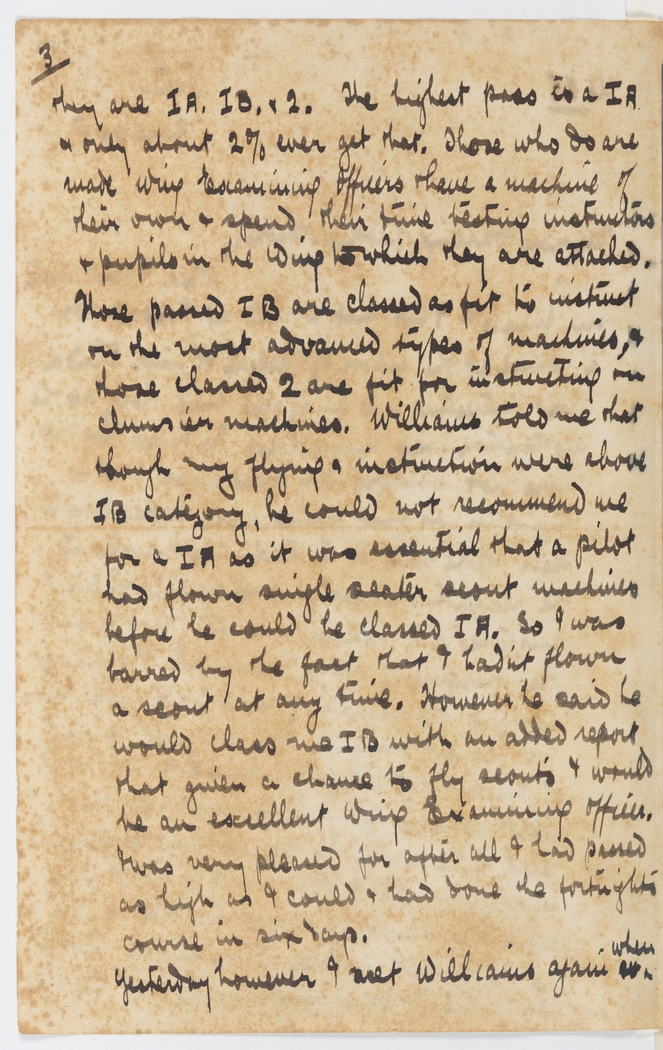 3
they are IA. IB. & 2. The highest pass is a IA
& only about 2% ever get that. Those who do are
made Wing Examining Officers & have a machine of
their own & spend their time testing instructors
& pupils in the Wing to which they are attached.
Those passed IB are classed as fit to instruct
on the most advanced types of machines, &
those classed 2 are fit for instructing on
clumsier machines. Williams told me that
though my flying & instruction were above
IB category, he could not recommend me
for a IA as it was essential that a pilot
had flown single seater scout machines
before he could be classed IA. So I was
barred by the fact that I hadn't flown
a scout at any time. However he said he
would class me IB with an added report
that given a chance to fly scouts I would
be an excellent Wing Examining officer.
I was very pleased for after all I had passed
as high as I could & had done the fortnights
course in six days.
Yesterday however I met Williams again when